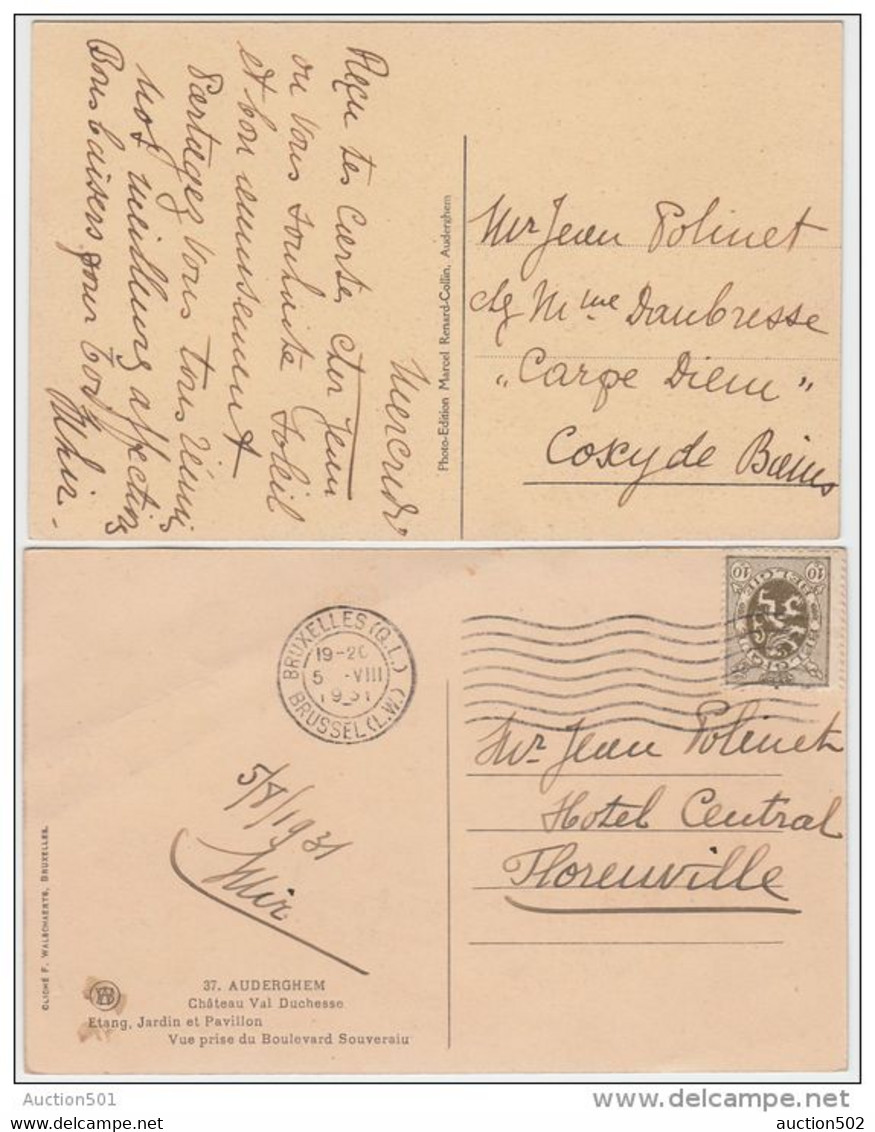 Mercredi
Reçu tes Cartes cher Jean
on vous souhaite Soleil
et bon amusement
Partagez Vous tous réunis
nos meilleurs affections
Bons baisers pour toi
Photo-Edition Marcel Renard-Collin, Auderghem
Mr Jean Polinet
chz Mme Daubresse
„Carpe Diem"
Coxyde Bains
BRUXELLES (Q.L.)
19-20
5 -VIII
1931
BRUSSEL (L.W.)
10 10
BELGIE
BELGIQUE
5/8/1931
Mr Jean Polinet
Hotel Central
Florenville
CLICHÉ F. WALSCHAERTS, BRUXELLES.
37. AUDERGHEM
Château Val Duchesse
Etang, Jardin et Pavillon
Vue prise du Boulevard Souverain
Auction501
delcampe.net
auction502